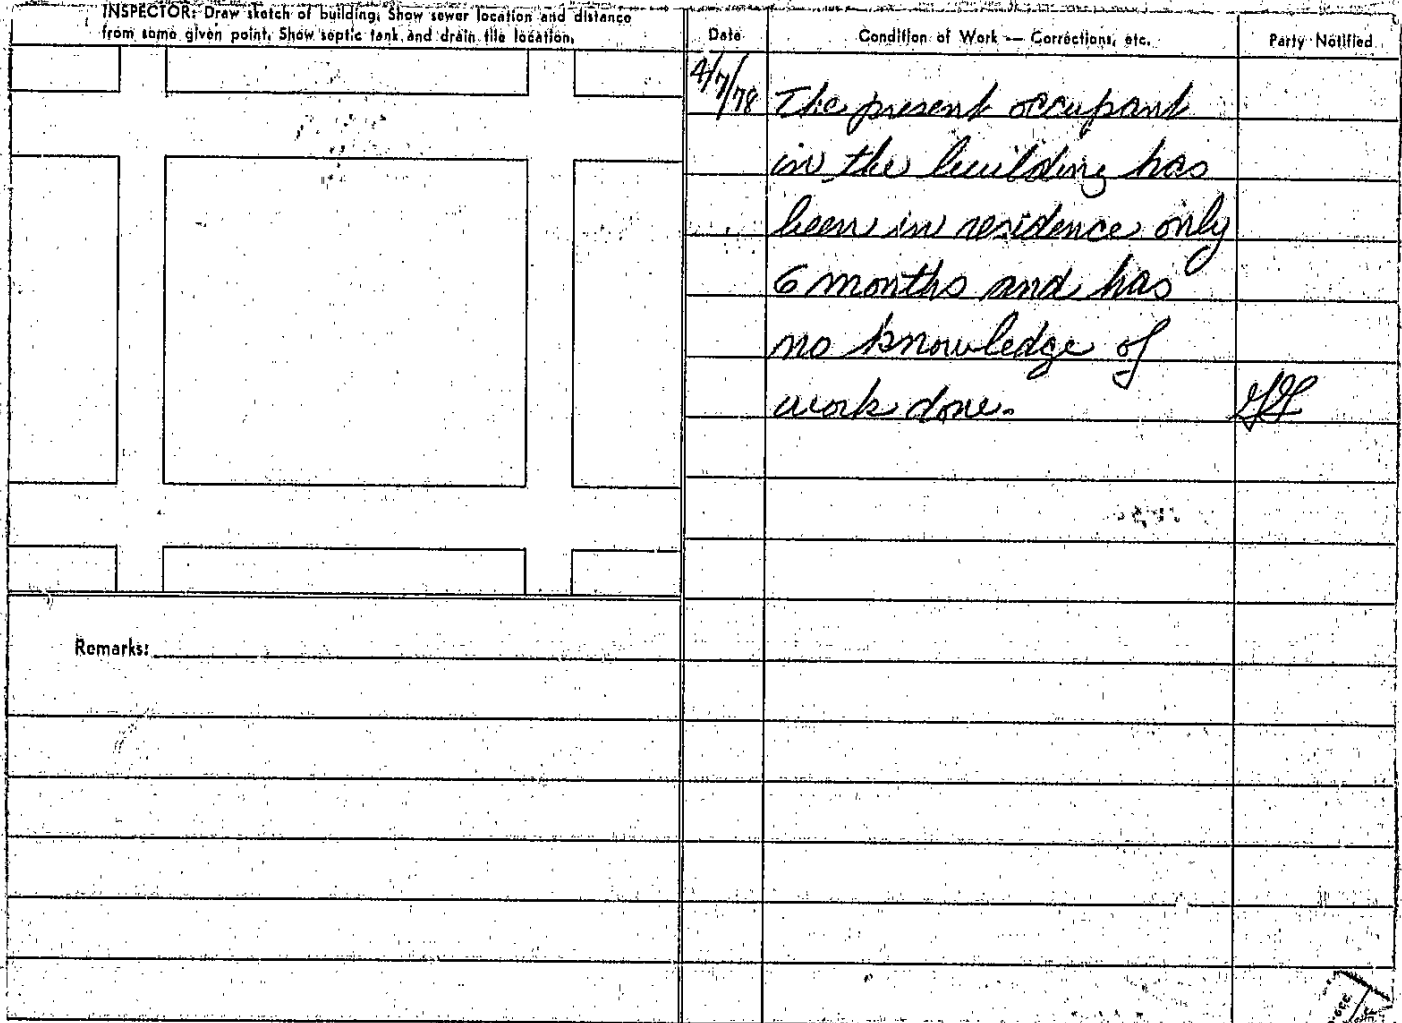 INSPECTOR: Draw sketch of building; Show sewer location and distance
from some given point. Show septic tank and drain tile location.
Date
Condition of Work — Corrections, etc.
Party Notified
4/7/78
The present occupant
in the building has
been in residence only
6 months and has
no knowledge of
work done.
Remarks: